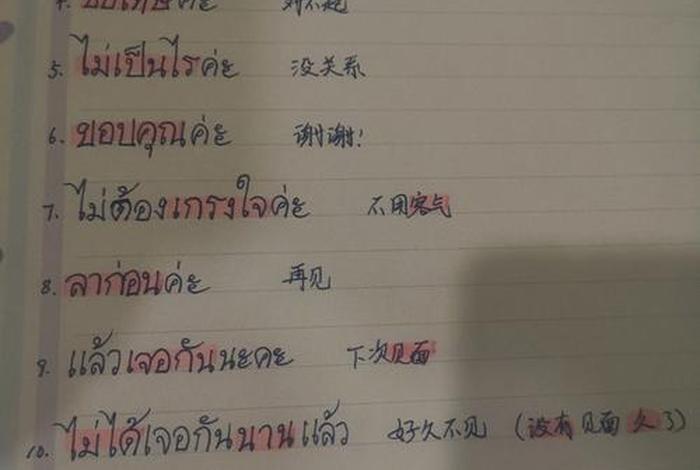 4. ขอโทษค่ะ 对不起
5. ไม่เป็นไรค่ะ 没关系
6. ขอบคุณค่ะ 谢谢!
7. ไม่ต้องเกรงใจค่ะ 不用客气
8. ลาก่อนค่ะ 再见
9. แล้วเจอกันนะคะ 下次见面
10. ไม่ได้เจอกันนานแล้ว 好久不见 (没有见面久了)